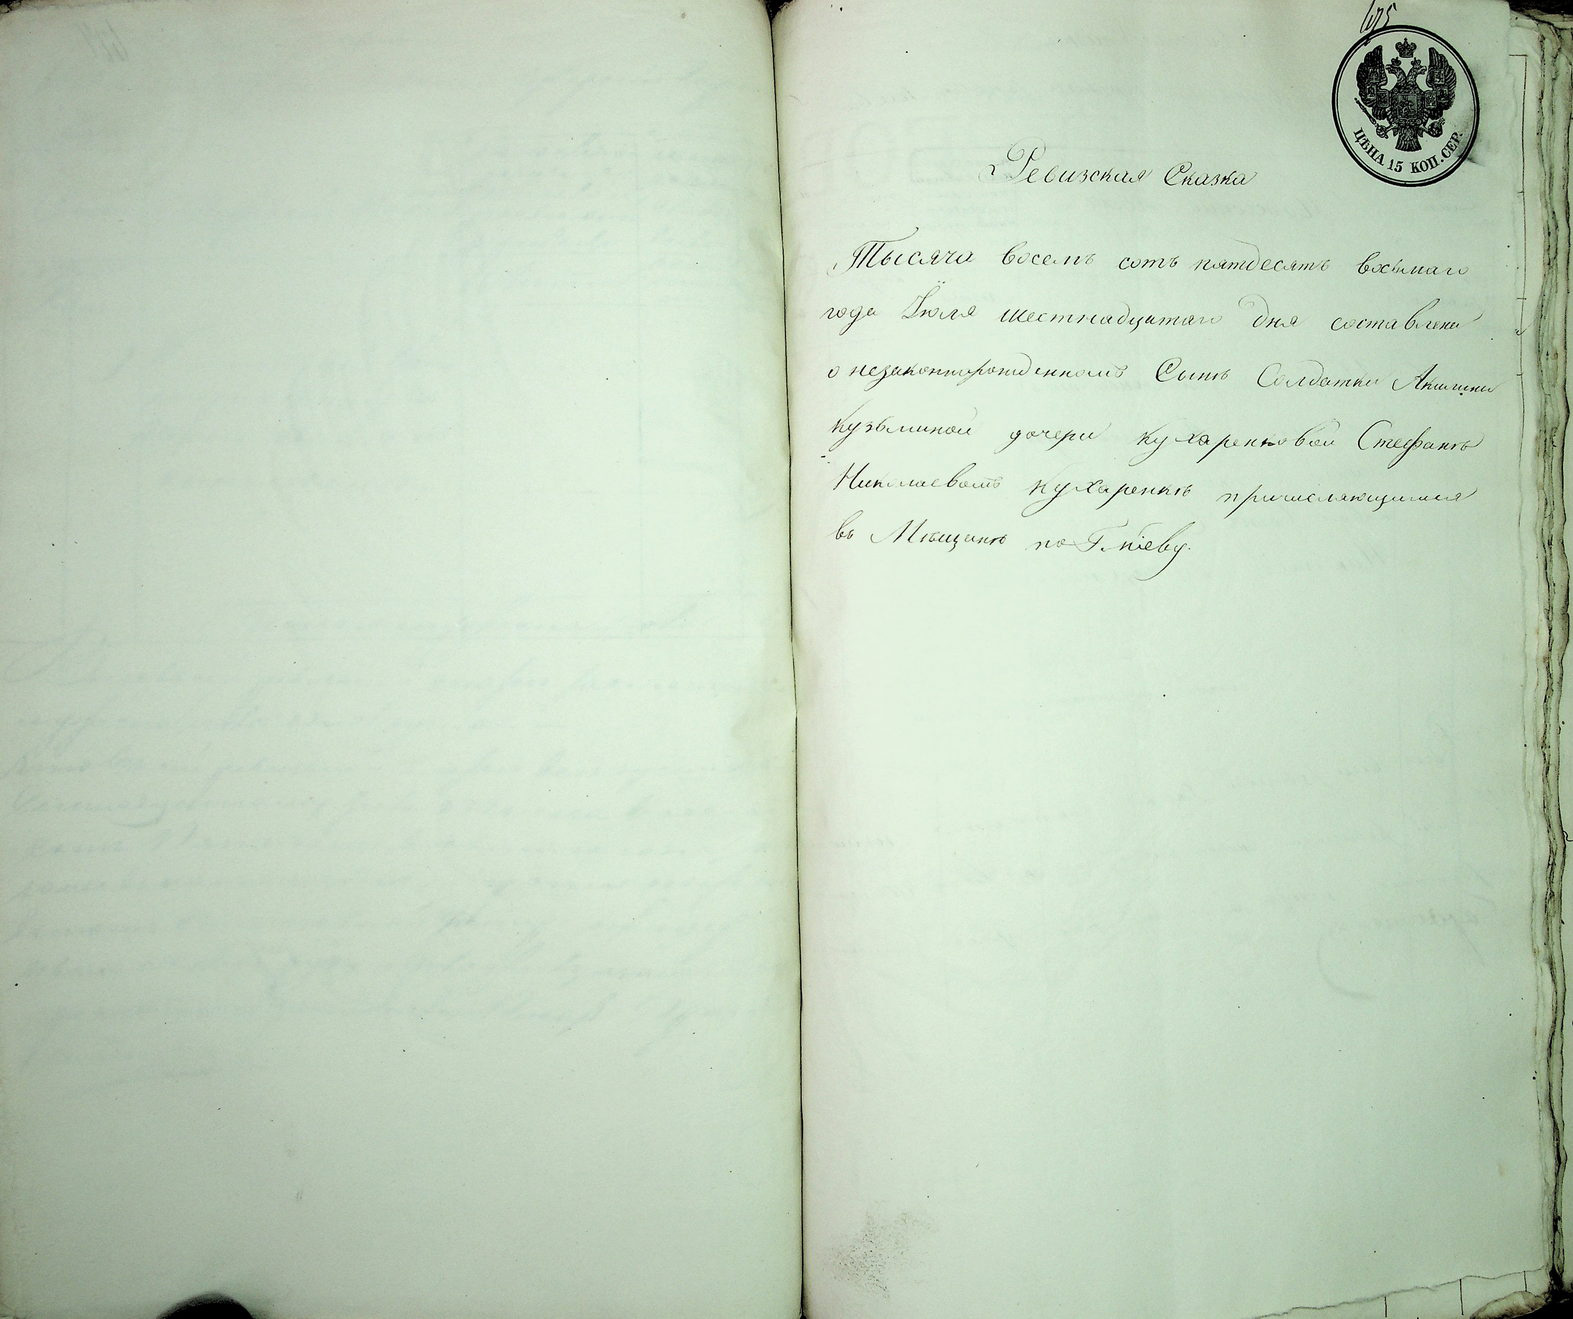 675
ЦѢНА 15 КОП. СЕР.
Ревизская Сказка
Тысяча восемь сотъ пятдесятъ восьмаго
года Іюля шестнадцатаго дня составлена
о незаконнорожденномъ Сынѣ Солдатки Акилины
Кузьминой дочери Кухаренковой Стефанѣ
Николаевомъ Кухаренкѣ причисляющимся
въ Мѣщанѣ по Г. Кіеву.